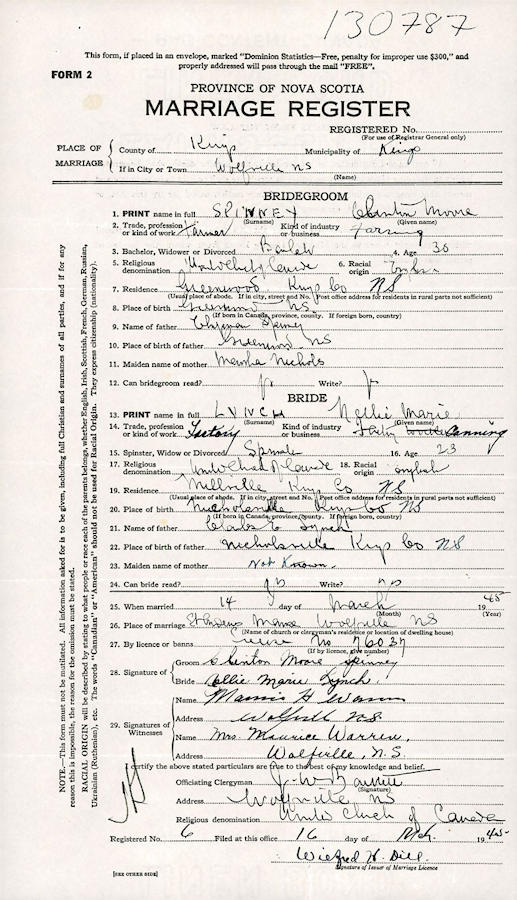 130787
This form, if placed in an envelope, marked "Dominion Statistics—Free, penalty for improper use $300," and
properly addressed will pass through the mail "FREE".
FORM 2
PROVINCE OF NOVA SCOTIA
MARRIAGE REGISTER
REGISTERED No.
(For use of Registrar General only)
PLACE OF MARRIAGE
County of Kings Municipality of Kings
If in City or Town Wolfville NS
(Name)
BRIDEGROOM
1. PRINT name in full SPINNEY Clinton Moore
(Surname) (Given name)
2. Trade, profession or kind of work Farmer Kind of industry or business Farming
3. Bachelor, Widower or Divorced 4. Age 30
5. Religious denomination 6. Racial origin
7. Residence Greenwood Kings Co NS
(Usual place of abode. If in city, street and No. Post office address for residents in rural parts not sufficient)
8. Place of birth Greenwood NS
(If born in Canada, province, county. If foreign born, country)
9. Name of father Spinney
10. Place of birth of father Greenwood NS
11. Maiden name of mother Nichols
12. Can bridegroom read? Write?
BRIDE
13. PRINT name in full LYNCH Nellie Marie
(Surname) (Given name)
14. Trade, profession or kind of work Factory Kind of industry or business Canning
15. Spinster, Widow or Divorced Spinster 16. Age 23
17. Religious denomination 18. Racial origin English
19. Residence Millville Kings Co NS
(Usual place of abode. If in city, street and No. Post office address for residents in rural parts not sufficient)
20. Place of birth Nicholsville Kings Co NS
(If born in Canada, province, county. If foreign born, country)
21. Name of father Lynch
22. Place of birth of father Nicholsville Kings Co NS
23. Maiden name of mother Not Known.
24. Can bride read? Write?
25. When married 14 day of March 1945
(Month) (Year)
26. Place of marriage Manse Wolfville NS
(Name of church or clergyman's residence or location of dwelling house)
27. By licence or banns License No 76037
(If by licence, give number)
28. Signature of
Groom Clinton Moore Spinney
Bride Nellie Marie Lynch
29. Signatures of Witnesses
Name Warren
Address Wolfville NS
Name Mrs. Maurice Warren,
Address Wolfville, N.S.
I certify the above stated particulars are true to the best of my knowledge and belief.
Officiating Clergyman
(Signature)
Address Wolfville NS
Religious denomination United Church of Canada
Registered No. 6 Filed at this office 16 day of Mch. 1945
Wilfred H. Dill
Signature of Issuer of Marriage Licence
[SEE OTHER SIDE]
NOTE.—This form must not be mutilated. All information asked for is to be given, including full Christian and surnames of all parties, and if for any
reason this is impossible, the reason for the omission must be stated.
RACIAL ORIGIN will be described by stating to what people or race each of the parents belongs, whether English, Irish, Scottish, French, German, Russian,
Ukrainian (Ruthenian), etc. The words "Canadian" or "American" should not be used for Racial Origin. They express citizenship (nationality).